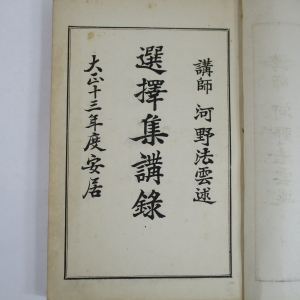 講師 河野法雲述
選擇集講錄
大正十三年度安居